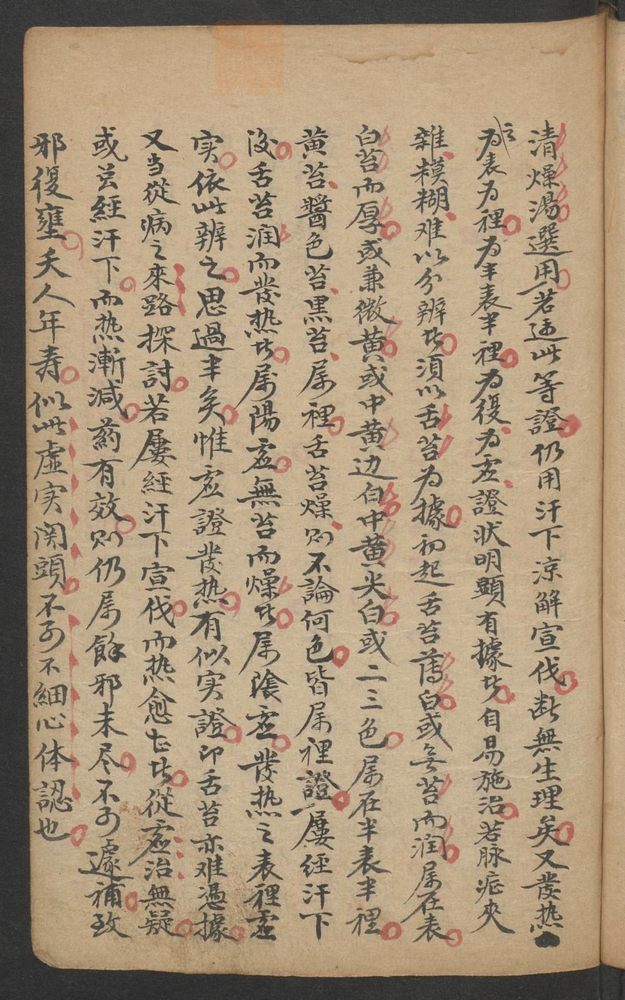 清燥湯選用若遇此等證仍用汗下涼解宣伐斷無生理矣又發热
之為表為裡為半表半裡為復為虗證状明顕有據者自易施治若脉症夾
雜模糊难以分辨者須以舌苔為據初起舌苔薄白或無苔而润属在表
白苔而厚或兼微黄或中黄边白中黄尖白或二三色属在半表半裡
黄苔醬色苔黑苔属裡舌苔燥則不論何色皆属裡證屢經汗下
後舌苔润而發热者属陽虗無苔而燥者属陰虗發热之表裡虗
実依此辨之思過半矣惟虗證發热有似実證即舌苔亦难憑據
又当從病之來路探討若屢經汗下宣伐而热愈甚者從虗治無疑
或曾經汗下而热漸減药有效則仍属餘邪未尽不可遽補致
邪復壅夭人年寿似此虚实関頭不可不細心体認也